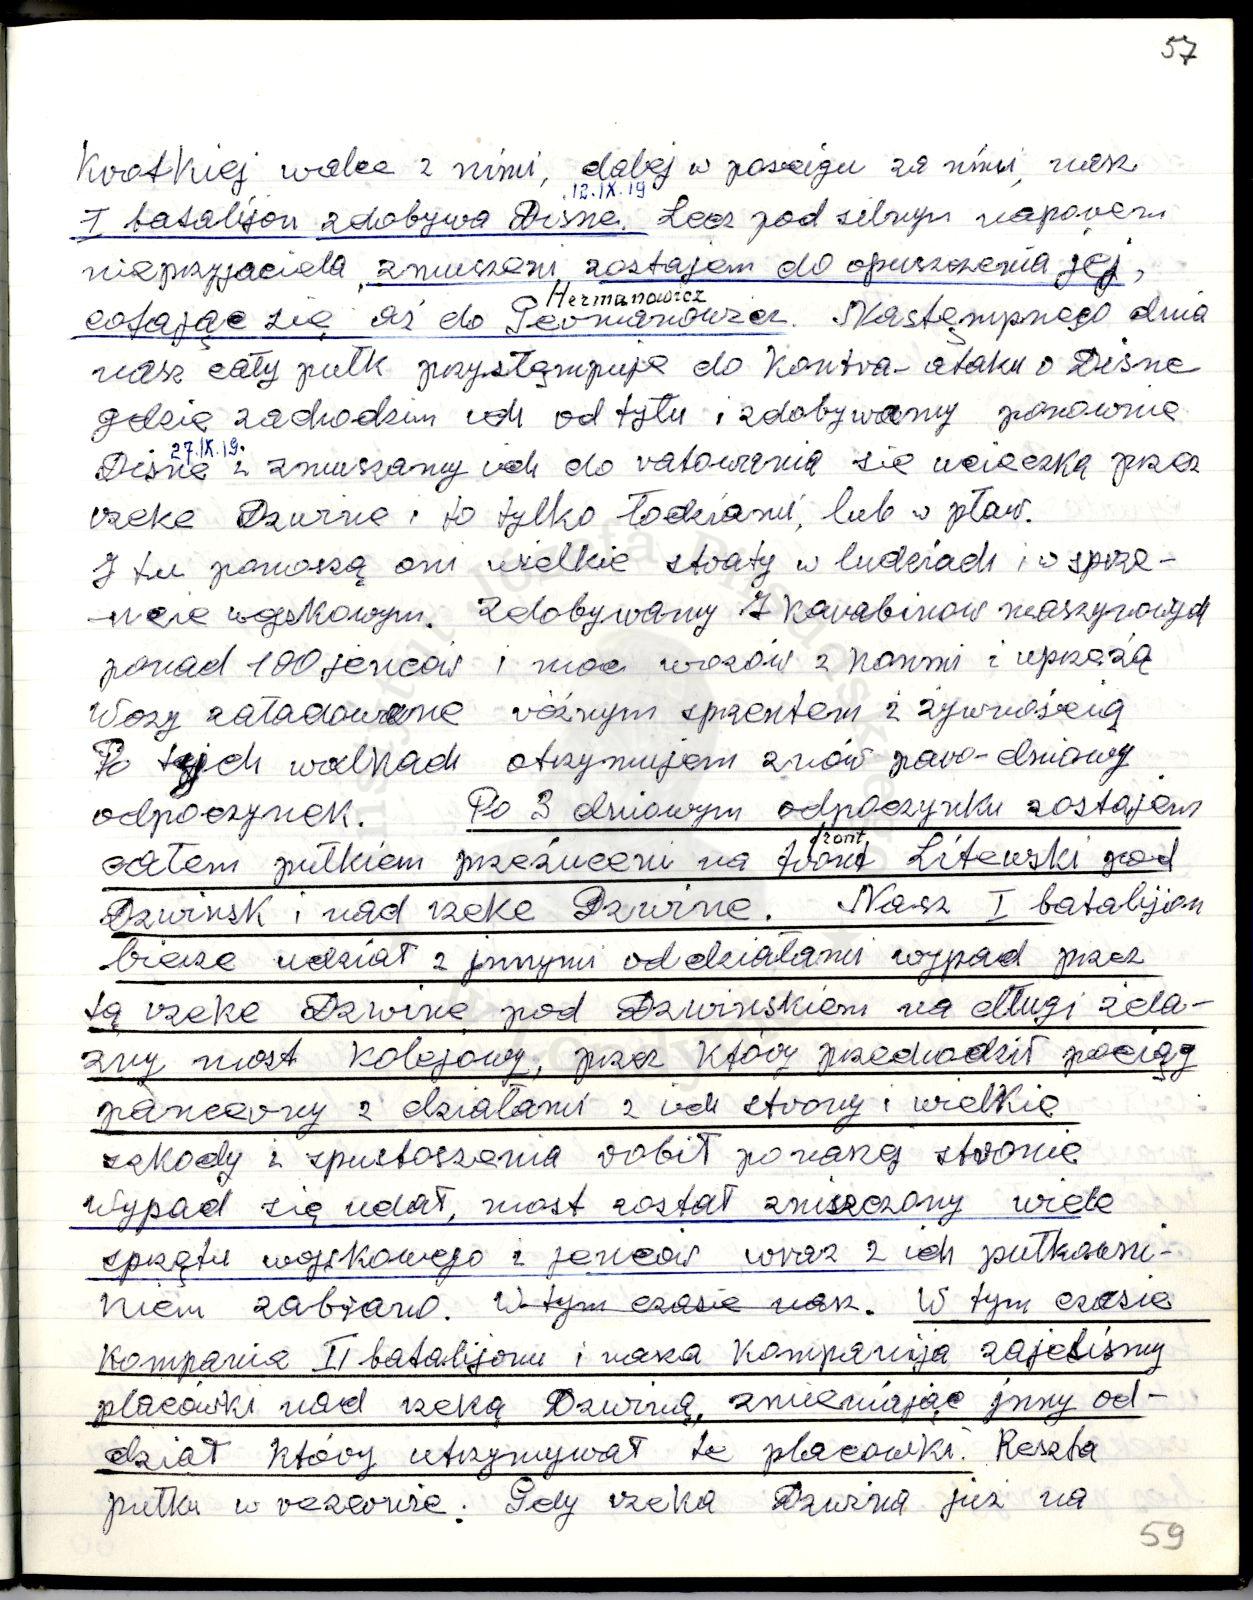 57
Krotkiej walce z nimi, dalej w poscigu za nimi, nasz
12.IX.19
I batalijon zdobywa Disne. Lecz pod silnym naporem
nieprzyjaciela, zmuszeni zostajem do opuszczenia jej,
Hermanowicz
cofając się aż do Germanowicz. Następnego dnia
nasz cały pułk przystempuje do Kontra-ataku o Disne
gdzie zachodzim ich od tyłu i zdobywamy ponownie
27.IX.19.
Disne i zmuszamy ich do ratowania się ucieczką przez
rzeke Dzwine i to tylko łodziami, lub w pław.
I tu ponoszą oni wielkie straty w ludziach i w sprze-
-ncie wojskowym. Zdobywamy 7 karabinow maszynowych
ponad 100 jencow i moc wozów z konmi i uprzężą
Wozy załadowane różnym sprzentem i żywnością
Po tych walkach otrzymujem znów paro-dniowy
odpoczynek. Po 3 dniowym odpoczynku zostajem
front
całem pułkiem przeżuceni na front Litewski pod
Dzwinsk i nad rzeke Dzwine. Nasz I batalijon
bierze udział z jnnymi oddziałami wypad przez
tą rzeke Dzwine pod Dzwinskiem na długi żela-
zny most kolejowy, przez który przechodził pociąg
pancerny z działami z ich strony i wielkie
szkody i spustoszenia robił po naszej stronie
Wypad się udał, most został zniszczony wiele
sprzętu wojskowego i jencow wraz z ich pułkowni-
kiem zabrano. W tym czasie nasz. W tym czasie
Kompania II batalijonu i nasza Kompanija zajeliśmy
placówki nad rzeką Dzwiną, zmieniając jnny od-
dział który utrzymywał te placowki. Reszta
pułku w rezerwie. Gdy rzeka Dzwina już na
59
Instytut Józefa Piłsudskiego
Londyn